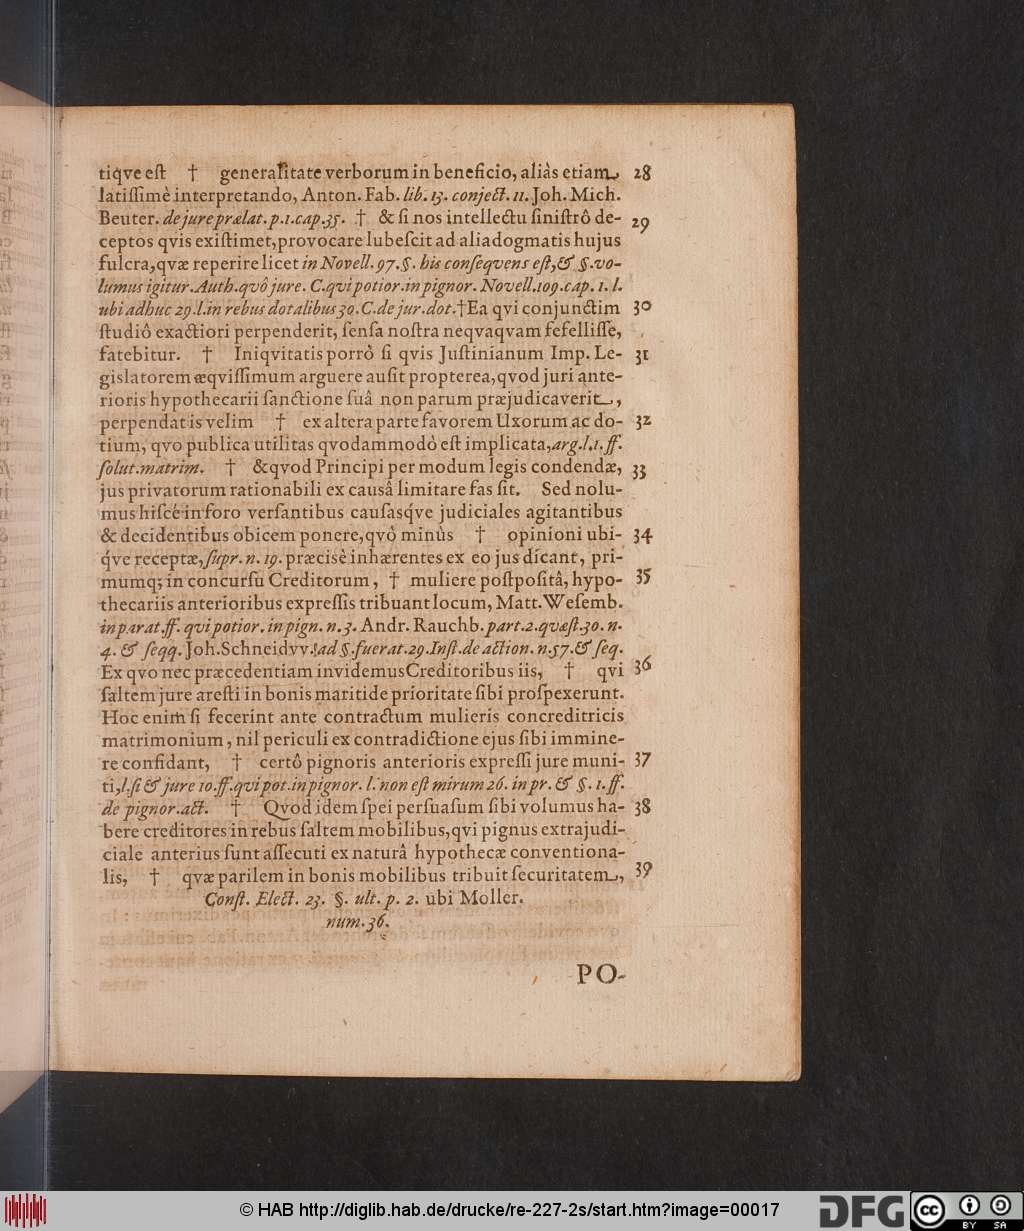 tiqve eſt † generalitate verborum in beneficio, aliàs etiam 28
latiſſimè interpretando, Anton. Fab. lib. 13. conject. 11. Joh. Mich.
Beuter. de jure prælat. p. 1. cap. 35. † & ſi nos intellectu ſiniſtrô de- 29
ceptos qvis exiſtimet, provocare lubeſcit ad alia dogmatis hujus
fulcra, qvæ reperire licet in Novell. 97. §. his conſeqvens eſt, & §. vo-
lumus igitur. Auth. qvô jure. C. qvi potior. in pignor. Novell. 109. cap. 1. l.
ubi adhuc 29. l. in rebus dotalibus 30. C. de jur. dot. † Ea qvi conjunctim 30
ſtudiô exactiori perpenderit, ſenſa noſtra neqvaqvam fefelliſſe,
fatebitur. † Iniqvitatis porrò ſi qvis Juſtinianum Imp. Le- 31
gislatorem æqviſſimum arguere auſit propterea, qvod juri ante-
rioris hypothecarii ſanctione ſuâ non parum præjudicaverit,
perpendat is velim † ex altera parte favorem Uxorum ac do- 32
tium, qvo publica utilitas qvodammodò eſt implicata, arg. l. 1. ff.
ſolut. matrim. † & qvod Principi per modum legis condendæ, 33
jus privatorum rationabili ex causâ limitare fas ſit. Sed nolu-
mus hiſce in foro verſantibus cauſasq́ve judiciales agitantibus
& decidentibus obicem ponere, qvò minùs † opinioni ubi- 34
q́ve receptæ, ſupr. n. 19. præcisè inhærentes ex eo jus dicant, pri-
mumq; in concurſu Creditorum, † muliere poſtpoſitâ, hypo- 35
thecariis anterioribus expreſſis tribuant locum, Matt. Weſemb.
in parat. ff. qvi potior. in pign. n. 3. Andr. Rauchb. part. 2. qvæſt. 30. n.
4. & ſeqq. Joh. Schneidvv. ad §. fuerat. 29. Inſt. de action. n. 57. & ſeq.
Ex qvo nec præcedentiam invidemus Creditoribus iis, † qvi 36
ſaltem jure areſti in bonis mariti de prioritate ſibi proſpexerunt.
Hoc enim ſi fecerint ante contractum mulieris concreditricis
matrimonium, nil periculi ex contradictione ejus ſibi immine-
re confidant, † certô pignoris anterioris expreſſi jure muni- 37
ti, l. ſi & jure 10. ff. qvi pot. in pignor. l. non eſt mirum 26. in pr. & §. 1. ff.
de pignor. act. † Qvod idem ſpei perſuaſum ſibi volumus ha- 38
bere creditores in rebus ſaltem mobilibus, qvi pignus extrajudi-
ciale anterius ſunt aſſecuti ex naturâ hypothecæ conventiona-
lis, † qvæ parilem in bonis mobilibus tribuit ſecuritatem, 39
Conſt. Elect. 23. §. ult. p. 2. ubi Moller.
num. 36.
PO-
© HAB http://diglib.hab.de/drucke/re-227-2s/start.htm?image=00017
DFG
cc
BY SA